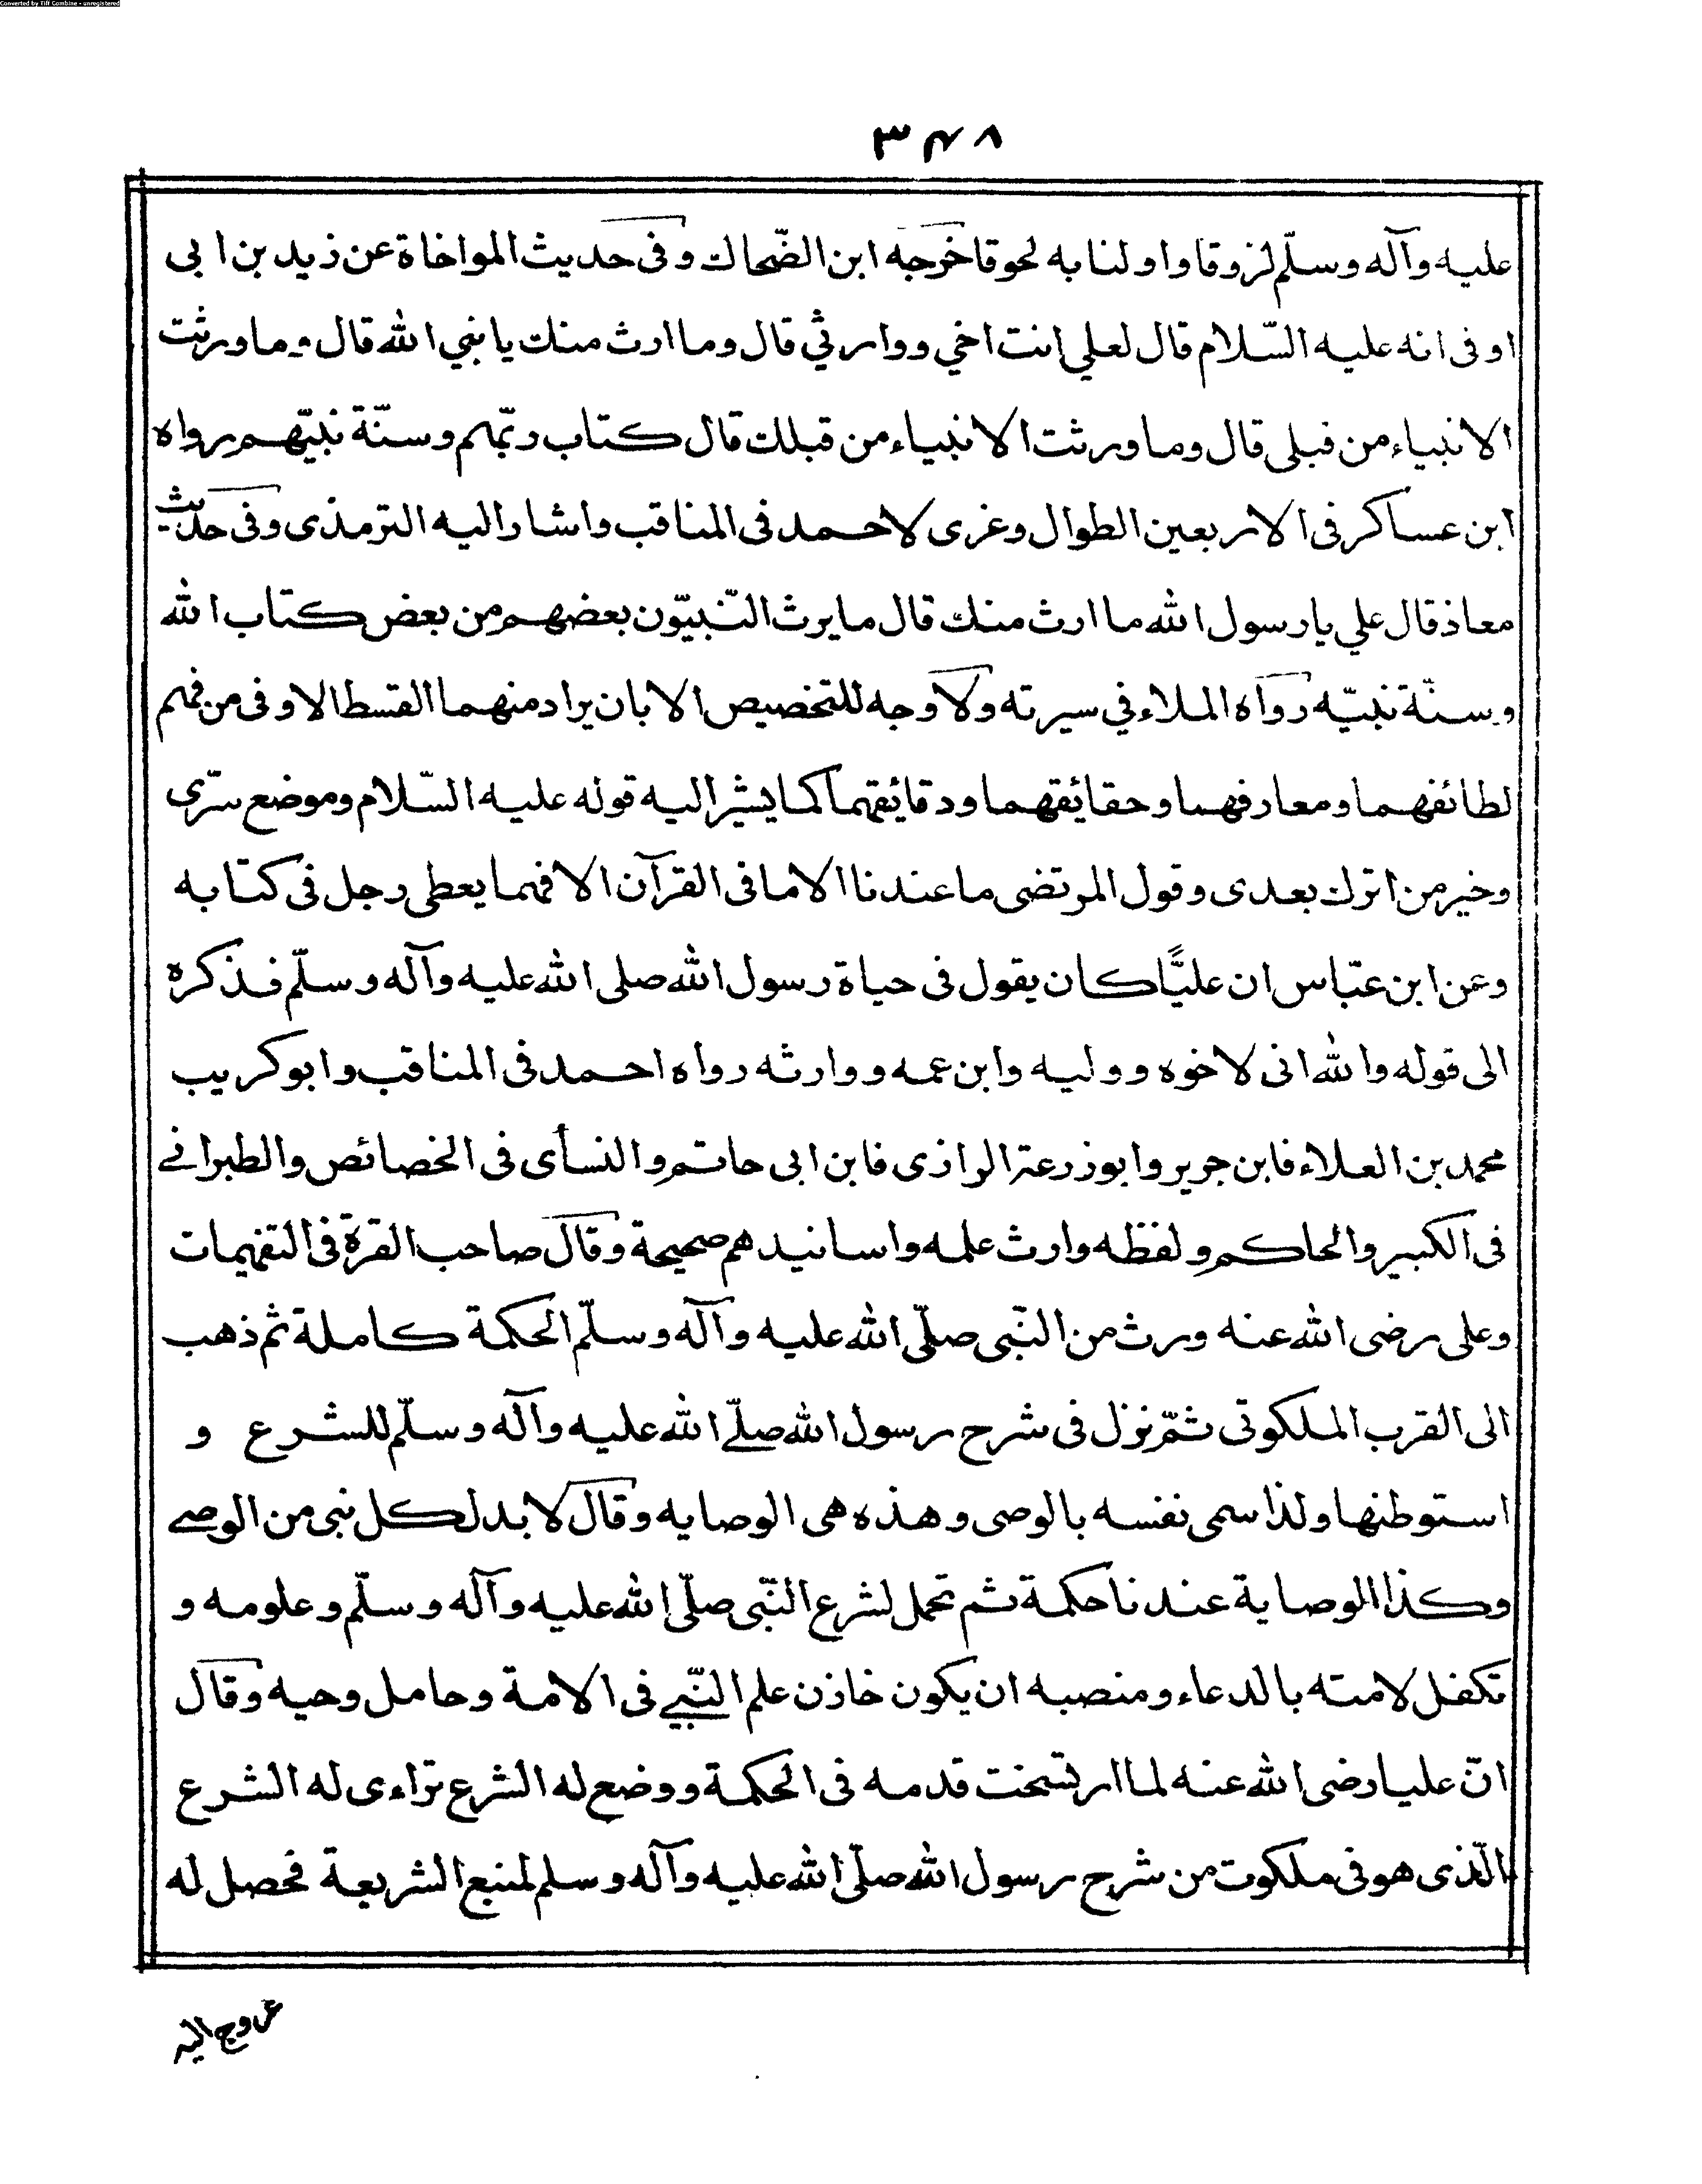 Converted by Tiff Combine - unregistered
٣٤٨
عليه وآله وسلّم لزوقا واولنا به لحوقا خرجه ابن الضّحاك وفى حديث المواخاة عن زيد بن ابى
اوفى انه عليه السّلام قال لعلي انت اخي ووارثي قال وما ارث منك يا نبي الله قال وما ورثت
الانبياء من قبلى قال وما ورثت الانبياء من قبلك قال كتاب ربّهم وسنّة نبيّهم رواه
ابن عساكر فى الاربعين الطوال وعزى لاحمد فى المناقب واشار اليه الترمذى وفى حديث
معاذ قال علي يا رسول الله ما ارث منك قال ما يرث النّبيّون بعضهم من بعض كتاب الله
وسنّة نبيّه رواه الملاء في سيرته ولا وجه للتخصيص الا بان يراد منهما القسط الاوفى من فهم
لطائفهما ومعارفهما وحقايقهما ودقايقهما كما يشير اليه قوله عليه السّلام وموضع سرّى
وخير من اترك بعدى وقول المرتضى ما عندنا الا ما فى القرآن الا فهما يعطى رجل فى كتابه
وعن ابن عبّاس ان عليًّا كان يقول فى حياة رسول الله صلى الله عليه وآله وسلّم فذكره
الى قوله والله انى لاخوه ووليه وابن عمه ووارثه رواه احمد فى المناقب وابو كريب
محمد بن العلاء فابن جرير وابو زرعة الرازى فابن ابى حاتم والنسأى فى الخصائص والطبرانے
فى الكبير والحاكم ولفظه وارث علمه واسانيدهم صحيحة وقال صاحب القرة فى التفهيمات
وعلى رضى الله عنه ورث من النّبى صلّى الله عليه وآله وسلّم الحكمة كاملة ثم ذهب
الى القرب الملكوتى ثمّ نزل فى شرح رسول الله صلّے الله عليه وآله وسلّم للشرع و
استوطنها ولذا سمى نفسه بالوصى وهذه هى الوصايه وقال لا بد لكل نبى من الوصے
وكذا الوصاية عندنا حكمة ثم تحمل لشرع النّبى صلّى الله عليه وآله وسلّم وعلومه و
تكفل لامته بالدعاء ومنصبه ان يكون خازن علم النّبے فى الامة وحامل وحيه وقال
انّ عليا رضى الله عنه لما ارتسخت قدمه فى الحكمة ووضع له الشرع تراءى له الشرع
الّذى هو فى ملكوت من شرح رسول الله صلّى الله عليه وآله وسلم لمنبع الشريعة فحصل له
عروج اليه